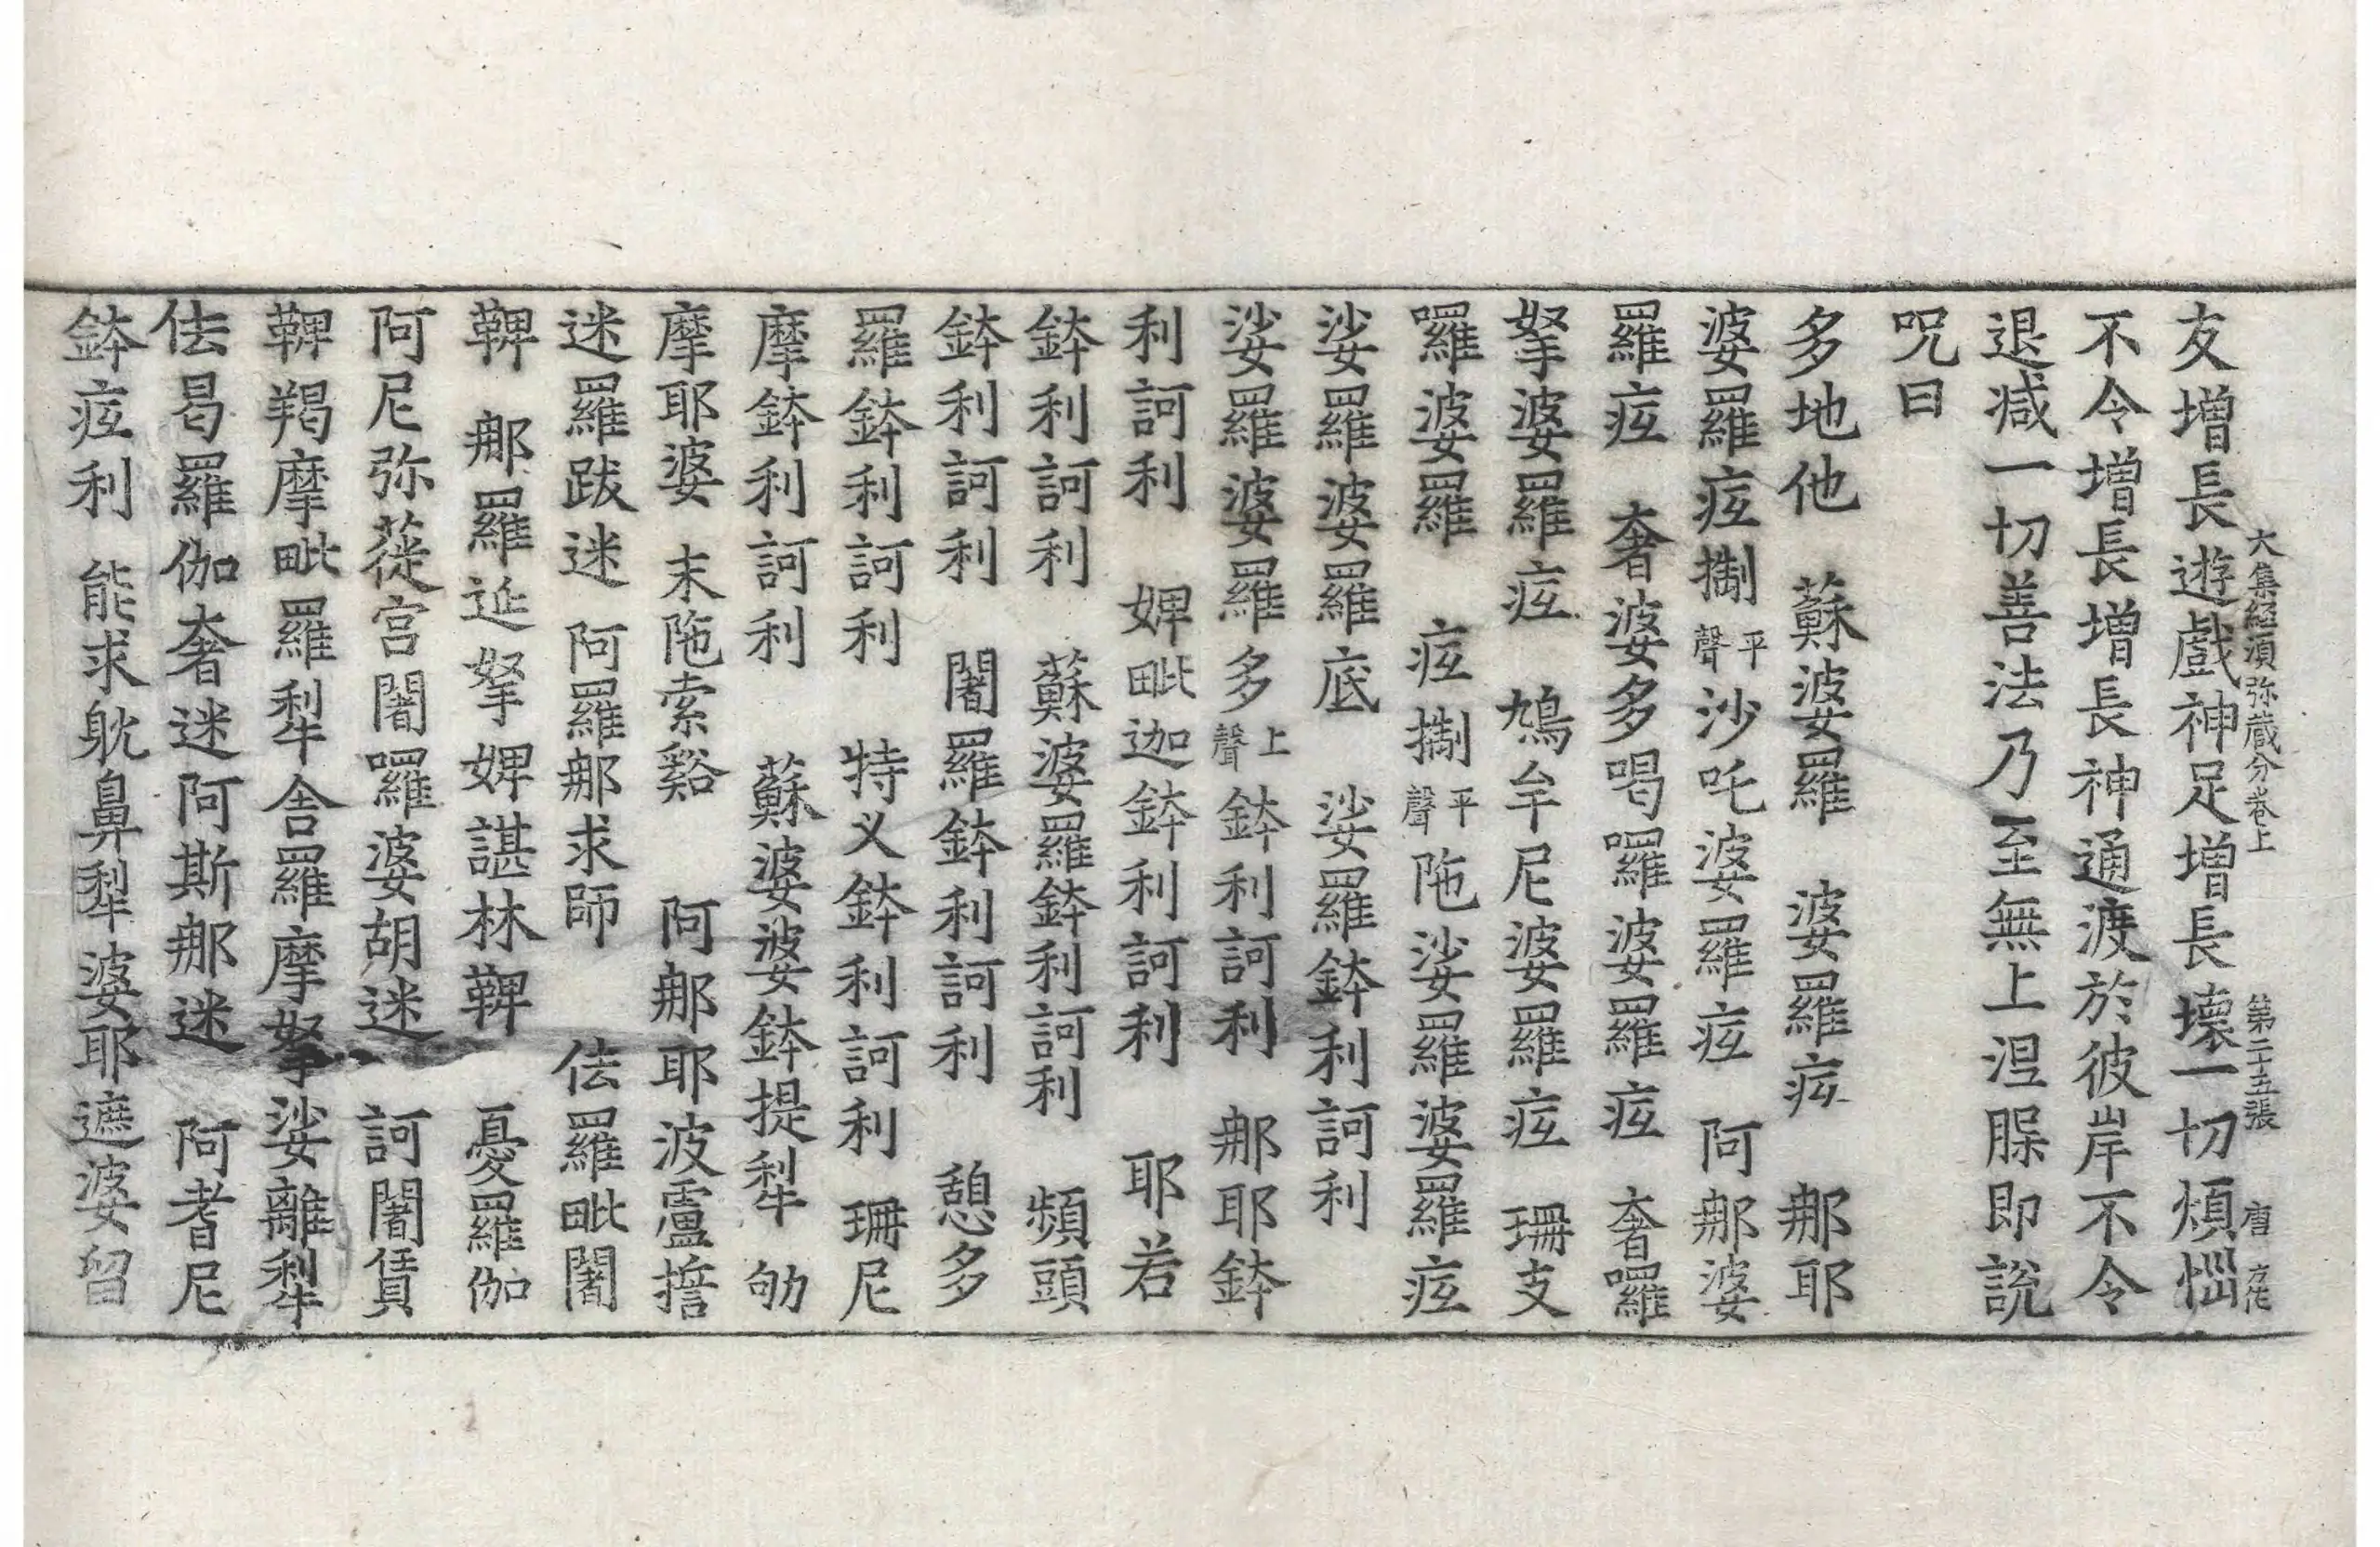 大集經須弥藏分卷上　第二十五張　唐
友增長遊戲神足增長壞一切煩惱
不令增長增長神通渡於彼岸不令
退减一切善法乃至無上涅脲即說
呪曰
多地他　蘇婆羅　婆羅㽹　那耶
婆羅㽹㨷平聲沙吒婆羅㽹　阿那婆
羅㽹　奢婆多喝囉婆羅㽹　奢囉
拏婆羅㽹　鳩牟尼婆羅㽹　珊支
囉婆羅　㽹㨷平聲陁娑羅婆羅㽹
娑羅婆羅底　娑羅鉢利訶利
娑羅婆羅多上聲鉢利訶利　那耶鉢
利訶利　婢毗迦鉢利訶利　耶若
鉢利訶利　蘇婆羅鉢利訶利　頻頭
鉢利訶利　闍羅鉢利訶利　憩多
羅鉢利訶利　特义鉢利訶利　珊尼
摩鉢利訶利　蘇婆婆鉢提犁　劬
摩耶婆　末陁索谿　阿那耶波盧㨾
迷羅跋迷　阿羅那求師　佉羅毗闍
鞞　那羅延拏婢諶林鞞　憂羅伽
阿尼弥蓰宮闍囉婆胡迷　訶闍賃
鞞羯摩毗羅犁舍羅摩拏娑離犁
佉曷羅伽奢迷阿斯那迷　阿耆尼
鉢㽹利　能求躭鼻犁婆耶遮婆留